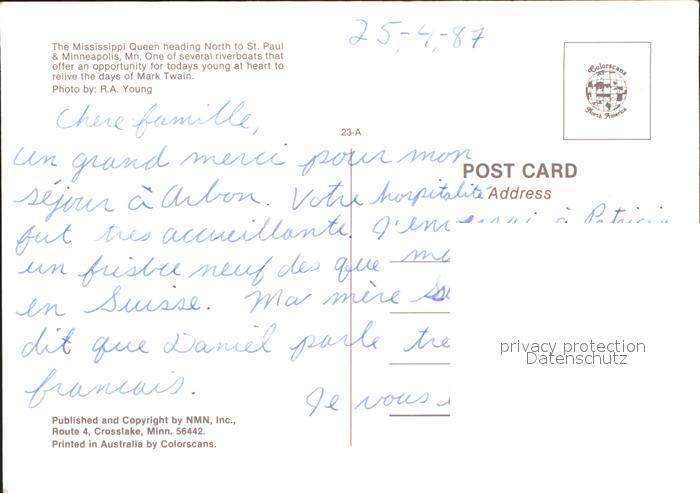 The Mississippi Queen heading North to St. Paul
& Minneapolis, Mn. One of several riverboats that
offer an opportunity for todays young at heart to
relive the days of Mark Twain.
Photo by: R.A. Young
25-4-87
Colorscans
North America
23-A
POST CARD
Address
Chere famille,
un grand merci pour mon
séjour à Arbon. Votre hospitalité
fut tres accueillante. J'en à Patricia
un frisbee neuf des que
en Suisse. Ma mère
dit que Daniel parle tre
francais.
Je vous
privacy protection
Datenschutz
Published and Copyright by NMN, Inc.,
Route 4, Crosslake, Minn. 56442.
Printed in Australia by Colorscans.